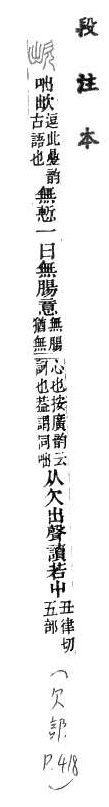 段注本
咄欪逗此疊韵古語也無慙一曰無腸意無腸猶無心也按廣韵云訶也葢謂同咄从欠出聲讀若屮丑律切五部
(欠部 P.418)